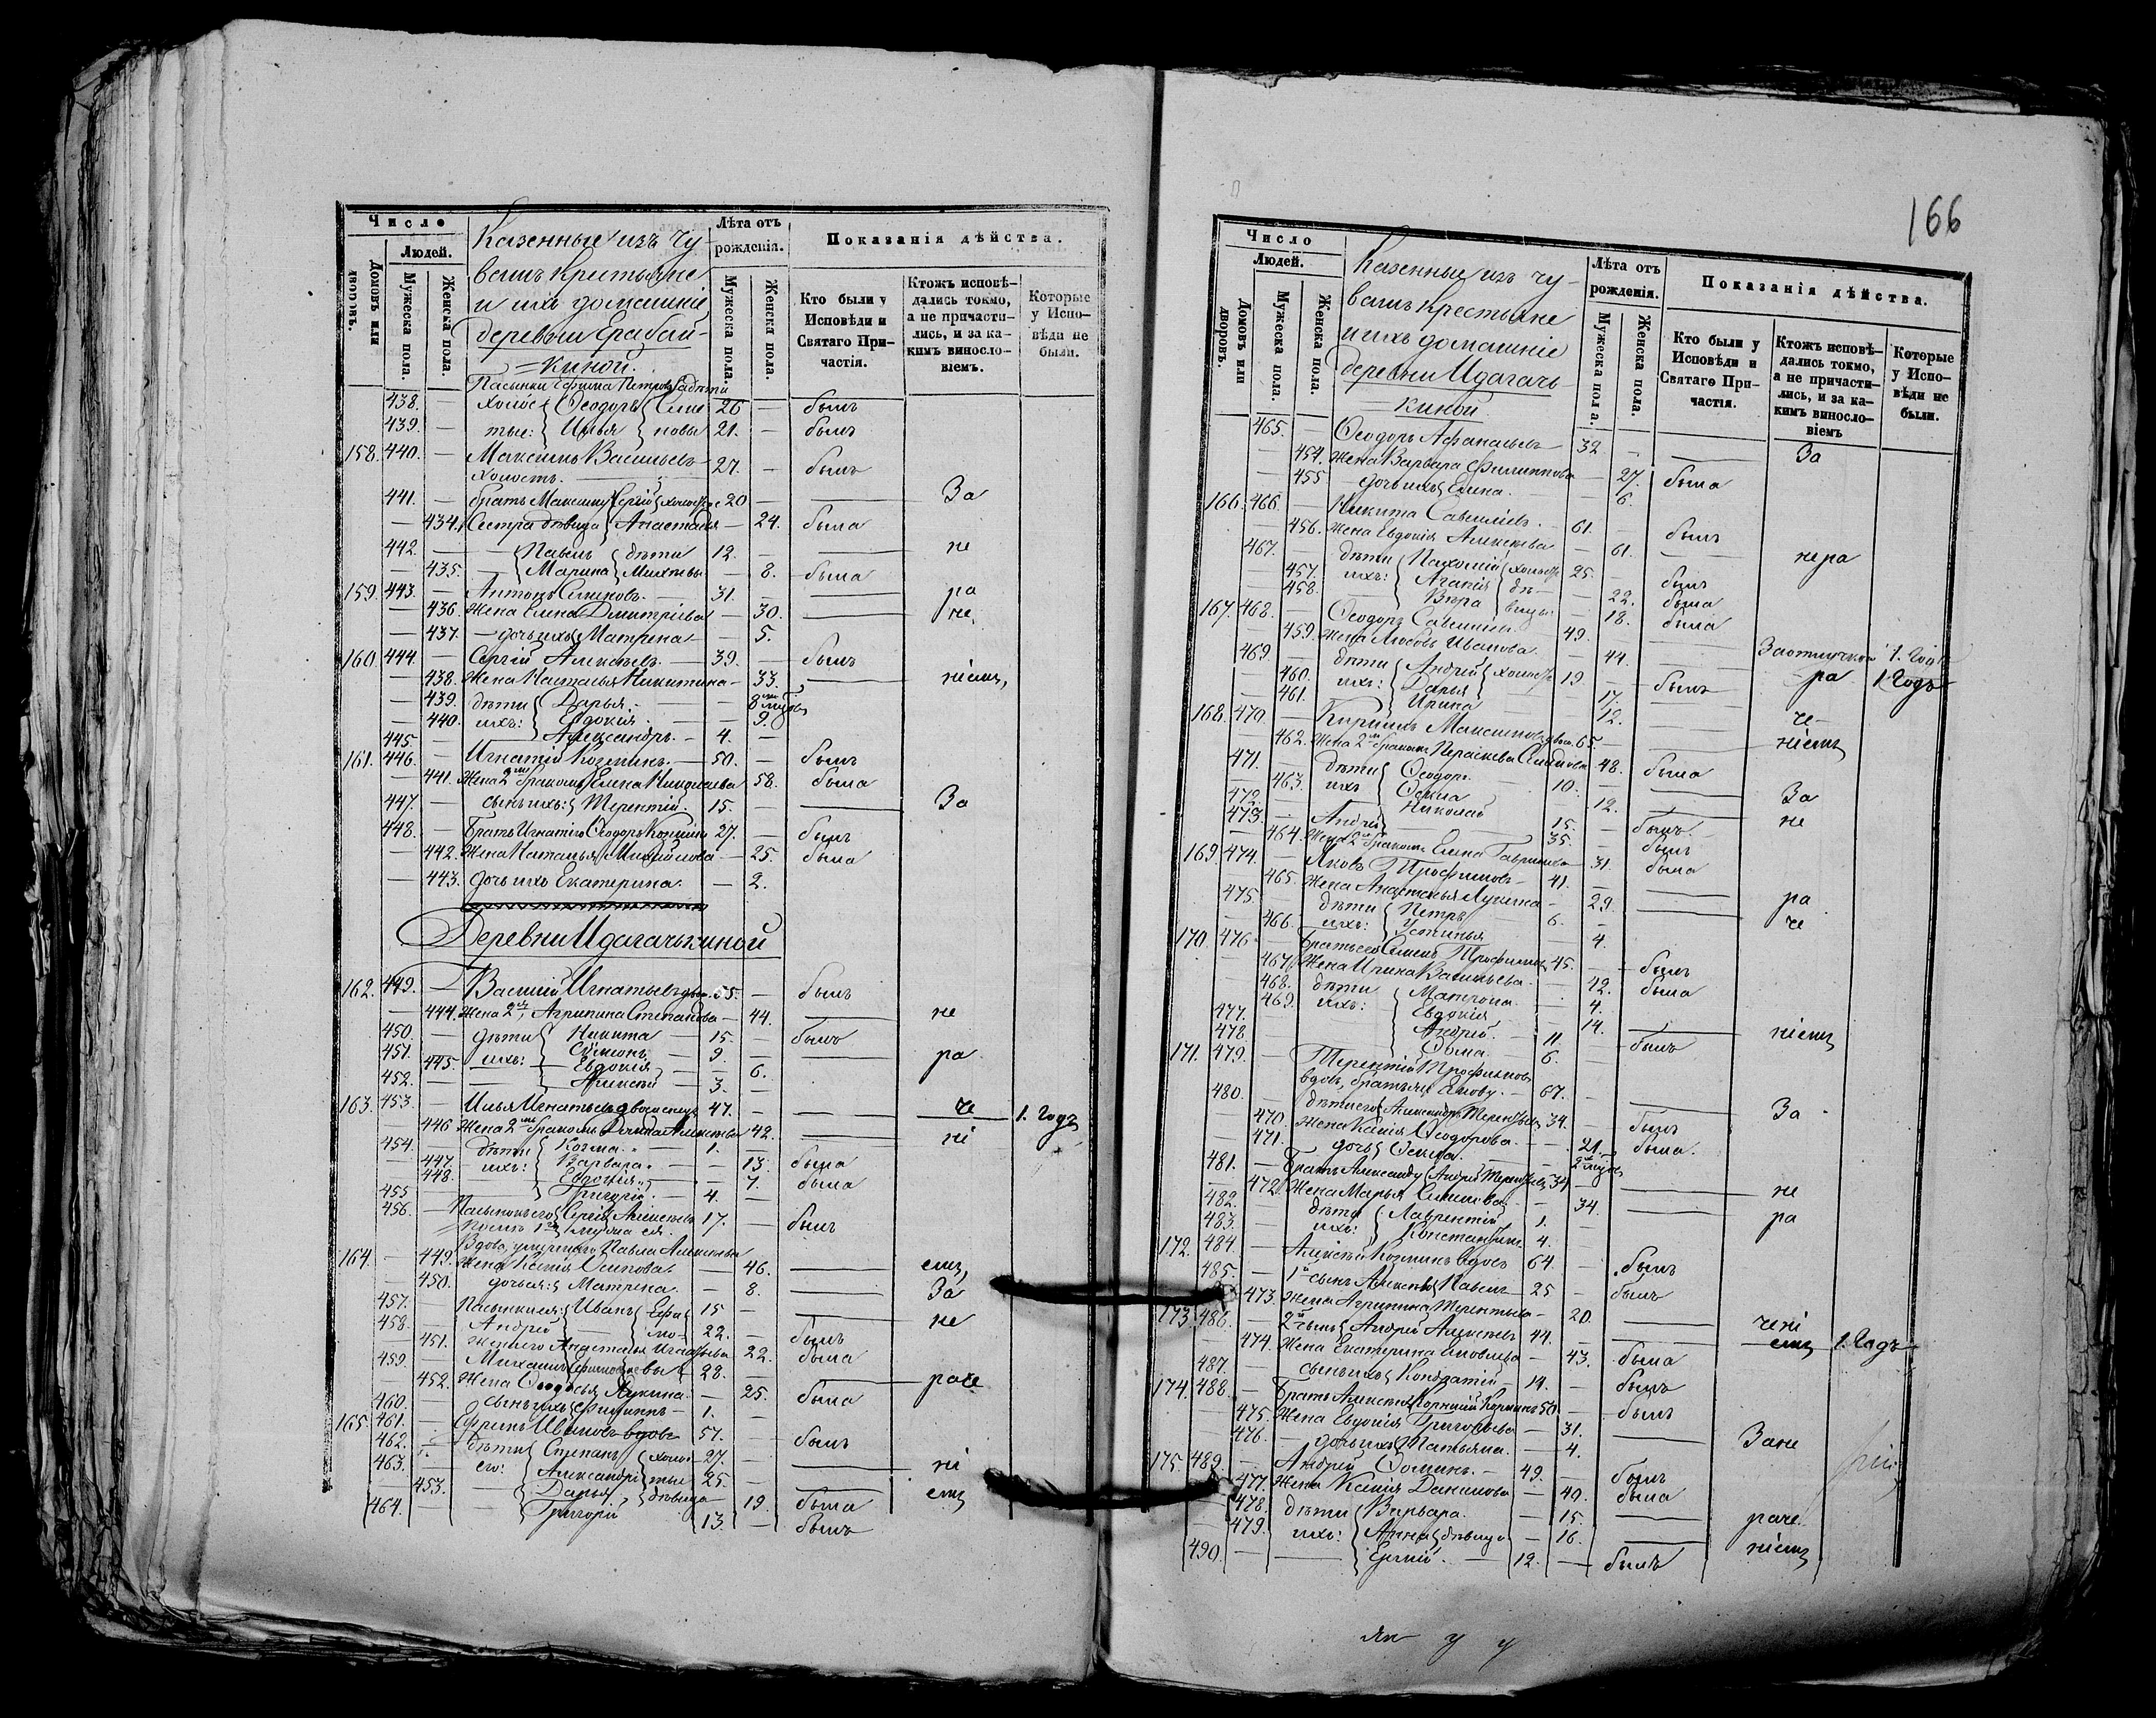 Число
Людей.
Домовъ или дворовъ.
Мужеска пола.
Женска пола.
Казенные изъ чу-
вашъ крестьяне
и ихъ домашніе
деревни Ерабай-
=киной.
Лѣта отъ рожденія.
Мужеска пола
Женска пола.
Показанія дѣйства.
Кто были у Исповѣди и Святаго Причастія.
Ктожъ исповѣ-дались токмо, а не причасти-лись, и за ка-кимъ виносло-віемъ.
Которые у Испо-вѣди не были.
Пасынки Ефима Петрова дѣти
438. — холос { Ѳеодоръ { Семе 26 — былъ
439. — тые: { Илья { новы 21. — былъ
158. 440. — Максимъ Васильевъ — 27. — былъ
холостъ.
441. — братъ Максиму { Сергій { холостъ 20 — За
— 434. Сестра дѣвица { Анастасія — 24. была
442. — { Павелъ { дѣти 12. — не
— 435. — { Марина { — 8. была
159. 443. — Антонъ Семеновъ. — 31. — ра
— 436. Жена Елена Дмитріева — 30. — не.
— 437. — дочь ихъ { Матрена — 5.
160. 444. — Сергій Алексѣевъ. — 39. — былъ
— 438. Жена Наталья Никитина — 33. — ніемъ,
— 439. дѣти { Дарья. —
— 440. ихъ: { Евдокія. — 9.
445. — { Александръ. — 4. —
161. 446. — Игнатій Козминъ. — 50. — былъ
— 441. Жена 2мъ бракомъ Елена — 58. была
447. — сынъ ихъ: { Терентій. 15. — За
448. — Братъ Игнатія Ѳеодоръ Козминъ 27. — былъ
— 442. Жена Наталья Михайлова — 25. была
— 443. дочь ихъ Екатерина. — 2.
Деревни Идагачькиной
162. 449. — Василій Игнатьевъ 55. — былъ
— 444. Жена 2я, Агрипина Степанова — 44. — не
450. — дѣти { Никита — 15. — былъ
451. ихъ: { Сѵмеонъ — 9. — ра
445. — { Евдокія — 6.
452. — { Алексѣй — 3.
163. 453. — Илья Игнатьевъ двоеженецъ 47. — че 1. годъ
— 446. Жена 2мъ бракомъ Алексѣева 42. — ні
454. — дѣти { Козма. — 1. —
— 447. ихъ: { Варвара. — 13. была
— 448. { Евдокія. — 7. была
455 — { Григорій. — 4. —
456. — Пасынокъ его { Сергій Алексѣевъ 17. — былъ
Вдова, умершаго Павла Алексѣева
164. — 449. Жена Ксенія Осипова. — 46. — емъ,
— 450. дочь ея: { Матрена. — 8. — За
457. — Пасынки ея: { Иванъ { Ефи 15 — не
458. — Андрей { мо- 22. — былъ
— 451. Жена его Анастасья Игнатьева 22. была
459. — Михаилъ 28. — раче
— 452. Жена Ѳеодосья Лукина. — 25. была
460. — сынъ ихъ { Филиппъ — 1. —
165. 461. — Ефремъ Ивановъ вдовъ 57. — былъ
462. — дѣти { Степанъ { холос 27. —
463. — его: { Александръ { тые 25. — ні
— 453. — { Дарья { дѣвица — 19. была емъ
464. — { Григорій 13. — былъ
166
Число
Людей.
Домовъ или дворовъ.
Мужеска пола.
Женска пола.
Казенные изъ чу-
вашъ крестьяне
и ихъ домашніе
деревни Идагачь-
киной
Лѣта отъ рожденія.
Мужеска пола.
Женска пола.
Показанія дѣйства.
Кто были у Исповѣди и Святаго При-частія.
Ктожъ исповѣ-дались токмо, а не причасти-лись, и за ка-кимъ виносло-віемъ
Которые у Испо-вѣди не были.
465. — Ѳеодоръ Афанасьевъ — 32 — За
— 454. Жена Варвара Филиппова — 27. была
— 455 — дочь ихъ { Елена. — 6.
166. 466. — Никита Савельевъ. — 61. — былъ
— 456. Жена Евдокія Алексѣева — 61. — нера
467. — дѣти { Пахомій { холостъ 25. — былъ
— 457. ихъ: { Агапія { дѣ- — 22. была
— 458. { Вѣра { вицы: — 18. была
167. 468. — Ѳеодоръ Савельевъ — 49. — 1. годъ
— 459. Жена Любовь Иванова. — 44. — ра 1 годъ
469. — дѣти { Андрей { холостъ 19 — былъ
— 460. ихъ: { Дарья — 17. — че
— 461. { Ирина — 12. — ніемъ
168. 470. — Кириллъ Максимовъ 65.
— 462. Жена 2мъ бракомъ Параскева 48. была
471. — дѣти { Ѳеодоръ 10. — За
— 463. ихъ { — 12. — не
472. { Николай 15. — былъ.
473. — Андрей 35. — былъ
— 464. Жена 2мъ бракомъ Елена Гаврилова 31. была
169. 474. — Яковъ Трофимовъ — 41. — ра
— 465. Жена Анастасья Лукина — 29. — че
475. — дѣти { Петръ 6. —
— 466. ихъ: { Устинья — 4.
170. 476 — Братъ его Семенъ Трофимовъ 45. — былъ
— 467. Жена Ирина Васильева. — 42. была
— 468. дѣти { Матрона. — 4.
— 469. ихъ: { Евдокія — 14. — ніемъ
477. { Андрей. — 11 — былъ
478. { Ѳома. — 6. —
171. 479. — Терентій Трофимовъ
вдовъ, братъ Якову. — 67. — За
480. — дѣти его { Александръ Терентьевъ 34. — былъ
— 470. Жена Ксенія Ѳеодорова. — 21. была.
— 471. дочь
481. — Братъ Александру { Андрей Терентьевъ 31 — не
— 472. Жена Марья — 34. — ра
482. — дѣти { Лаврентій 1. —
483. — ихъ: { Константинъ 4. —
172. 484. — Алексѣй Козминъ вдовъ 64. — былъ
485. — 1й сынъ Алексѣя { Павелъ — 25 — былъ
— 473. Жена Агрипина Терентьева — 20. — чені
173. 486. — 2й сынъ { Андрей Алексѣевъ 44. — емъ 1. годъ
— 474. Жена Екатерина Яковлева — 43. была
487. — сынъ ихъ { Кондратій — 14. — былъ
174. 488. — Братъ Алексѣя { Корнилій Козминъ 50 — былъ
— 475. Жена Евдокія Григорьева — 31. — Зане
— 476. — дочь ихъ { Татьяна. — 4.
175. 489. — Андрей Ѳоминъ. — 49. — былъ
— 477. Жена Ксенія Данилова — 40. была
— 478. дѣти { Варвара. — 15. — раче
— 479. ихъ: { Анна { дѣвица — 16. — ніемъ
490. — { Сергій. — 12. — былъ